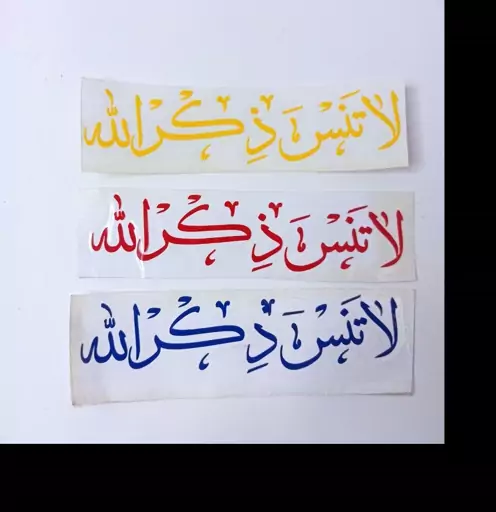 لا تَنسَ ذِكر الله
لا تَنسَ ذِكر الله
لا تَنسَ ذِكر الله